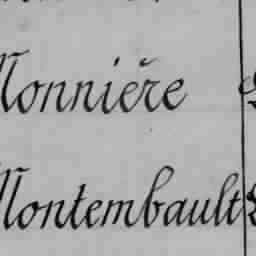 Monnière
Montembault